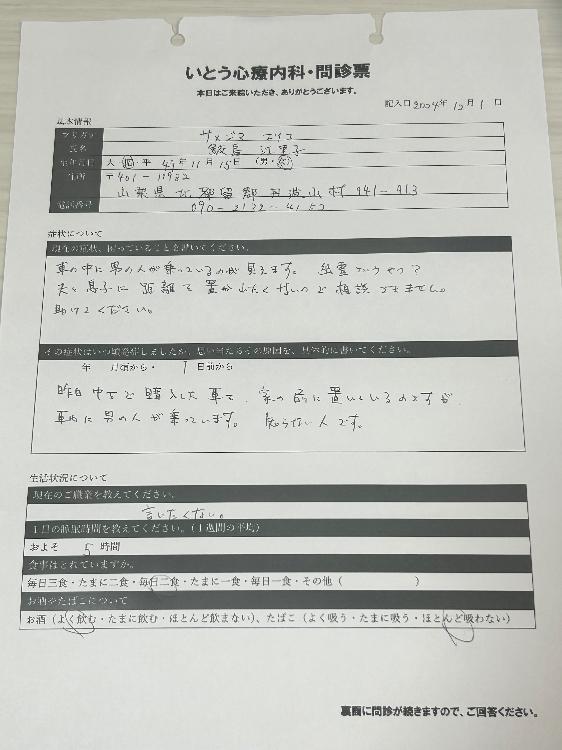 いとう心療内科・問診票
本日はご来院いただき、ありがとうございます。
記入日 2004年 10月 1日
基本情報
フリガナ サメジマ エリコ
氏名 鮫島
生年月日 大・昭・平 49年 11月 15日 (男・女)
住所 〒401-11932
山梨県北都留郡丹波山村 941-413
電話番号 090-2132-4150
症状について
現在の症状、困っていることを書いてください。
車の中に男の人が乗っているのが見えます。 幽霊でしょうか?
夫と息子に 距離を置かれたくないので 相談できません。
助けてください。
その症状はいつ頃発症しましたか。思い当たるその原因を、具体的に書いてください。
年 月前から・ 1 日前から
昨日 中古で購入した車を、家の前に置いているのですが、
車内に男の人が乗っています。 知らない人です。
生活状況について
現在のご職業を教えてください。
言いたくない。
1日の睡眠時間を教えてください。(1週間の平均)
およそ 5 時間
食事はとれていますか。
毎日三食・たまに二食・毎日二食・たまに一食・毎日一食・その他( )
お酒やたばこについて
お酒(よく飲む・たまに飲む・ほとんど飲まない)、たばこ(よく吸う・たまに吸う・ほとんど吸わない)
裏面に問診が続きますので、ご回答ください。